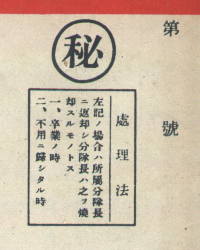 第　　號
㊙
處理法
左記ノ場合ハ所屬分隊長
ニ返却シ分隊長ハ之ヲ燒
却スルモノトス
一、卒業ノ時
二、不用ニ歸シタル時